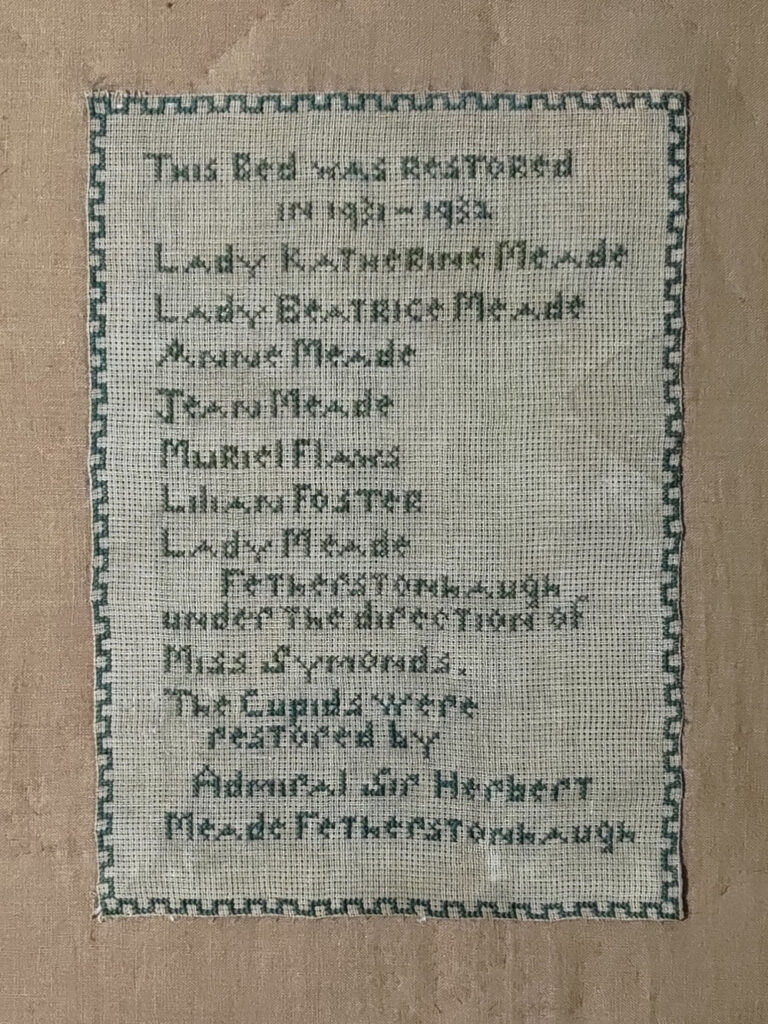 This Bed was restored
in 1931-1932
Lady Katherine Meade
Lady Beatrice Meade
Anne Meade
Jean Meade
Muriel Flaws
Lilian Foster
Lady Meade
Fetherstonhaugh
under the direction of
Miss Symonds.
The Cupids were
restored by
Admiral Sir Herbert
Meade Fetherstonhaugh